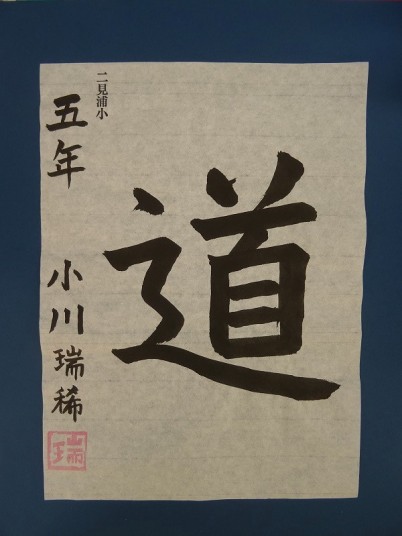 道
二見浦小
五年 小川瑞稀
瑞